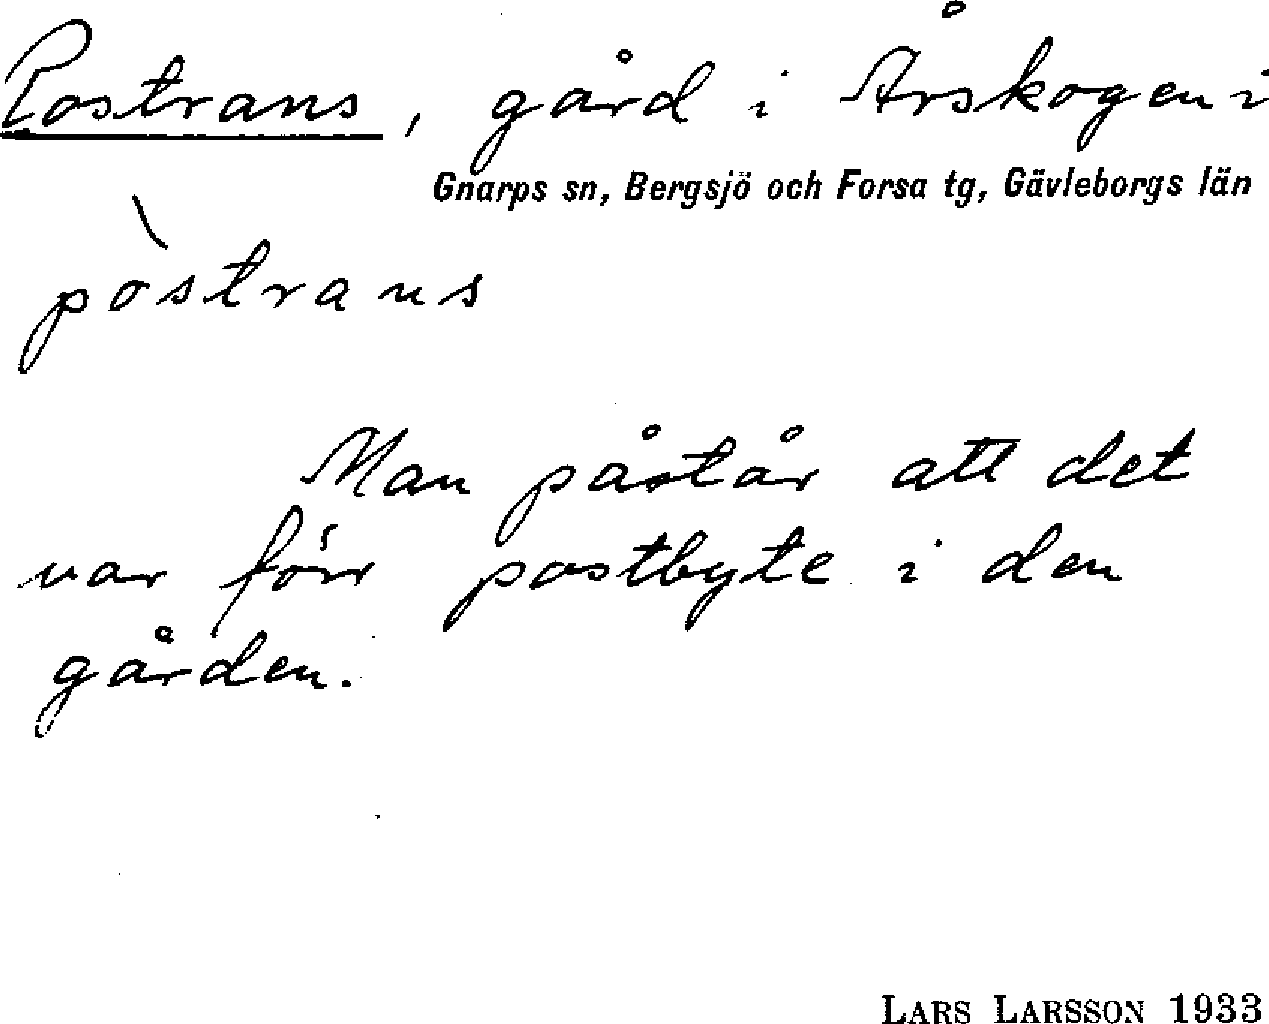 Postrans, gård i Årskogen i
Gnarps sn, Bergsjö och Forsa tg, Gävleborgs län
pòstrans
Man påstår att det
var förr postbyte i den
gården.
LARS LARSSON 1933